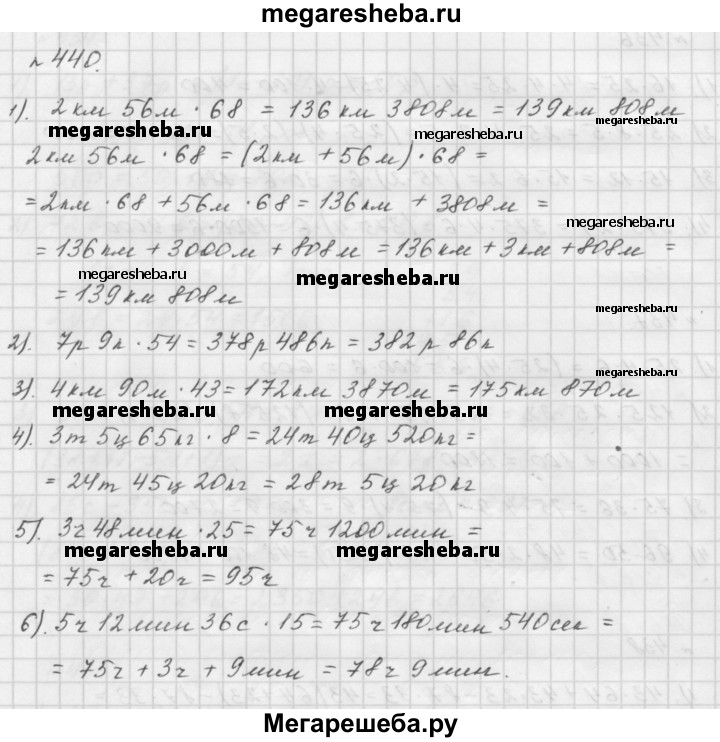 megaresheba.ru
№ 440.
1). 2 км 56 м · 68 = 136 км 3808 м = 139 км 808 м
megaresheba.ru megaresheba.ru megaresheba.ru
2 км 56 м · 68 = (2 км + 56 м) · 68 =
= 2 км · 68 + 56 м · 68 = 136 км + 3808 м =
megaresheba.ru
= 136 км + 3000 м + 808 м = 136 км + 3 км + 808 м =
megaresheba.ru megaresheba.ru
= 139 км 808 м
megaresheba.ru
2). 7р 9к · 54 = 378р 486к = 382р 86к
megaresheba.ru
3). 4 км 90 м · 43 = 172 км 3870 м = 175 км 870 м
megaresheba.ru megaresheba.ru
4). 3т 5ц 65кг · 8 = 24т 40ц 520кг =
= 24т 45ц 20кг = 28т 5ц 20кг
5). 3ч 48мин · 25 = 75ч 1200мин =
megaresheba.ru megaresheba.ru
= 75ч + 20ч = 95ч
6). 5ч 12мин 36с · 15 = 75ч 180мин 540сек =
= 75ч + 3ч + 9мин = 78ч 9мин.
Мегарешеба.ру